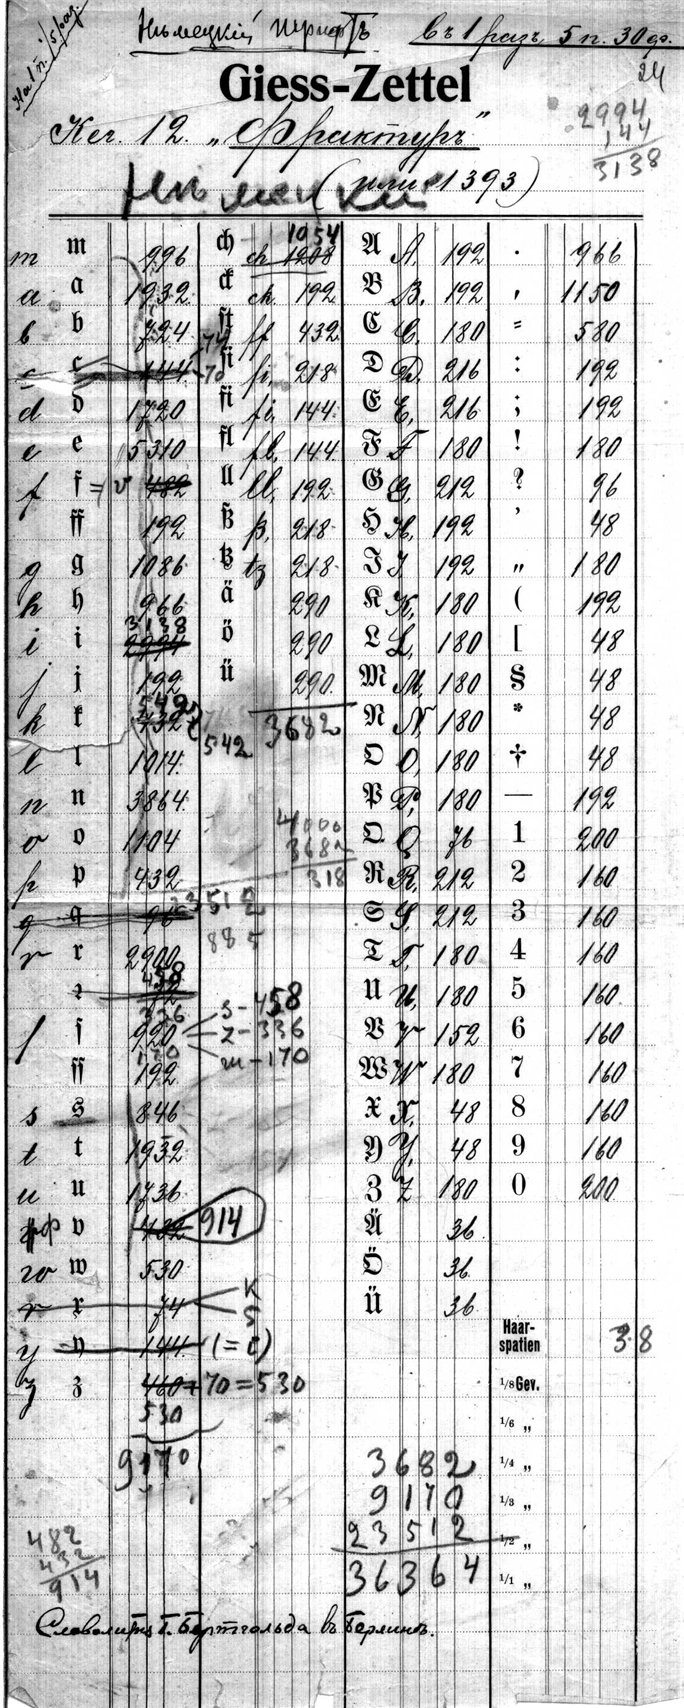 Нѣмецкiй шрифтъ въ 1 разъ 5 п. 30 ф.
24
Giess-Zettel
Кег. 12. „Фрактуръ"
2994
144
3138
(или 1393)
m m 996 ch ch 1054 1208 A A. 192 . 966
a a 1932 ck ck 192 B B. 192 , 1150
b b 724 ſt ff 432 C C. 180 = 580
c c 144 74 70 ſi fi, 218 D D. 216 : 192
d d 1720 fi fi, 144 E E, 216 ; 192
e e 5310 fl fl, 144 F F 180 ! 180
f f = v 482 ll ll, 192 G G, 212 ? 96
ff 192 ß ß, 218 H H, 192 ’ 48
g g 1086 tz tz 218 I I 192 „ 180
h h 966 ä 290 K K, 180 ( 192
i i 3138 2994 ö 290 L L, 180 [ 48
j j 192 ü 290 M M, 180 § 48
k k 542 432 542 3682 N N, 180 * 48
l l 1014 O O, 180 † 48
n n 3864 P P, 180 — 192
o o 1104 4000 3682 Q Q 76 1 200
p p 432 318 R R, 212 2 160
q q 96 23512 S S, 212 3 160
r r 2900 885 T T, 180 4 160
458 72 U U, 180 5 160
ſ ſ 336 920 s-458 z-336 V V 152 6 160
ſſ 170 192 ш-170 W W 180 7 160
s s 846 X X, 48 8 160
t t 1932 Y Y, 48 9 160
u u 1736 Z Z 180 0 200
v 432 914 Ä 36
w w 530 Ö 36
x 74 K S Ü 36
Haar-
spatien 38
y y 144 (=c)
z z 460+70=530 1/8 Gev.
530 1/6 „
9170 3682 1/4 „
9170 1/3 „
482 23512 1/2 „
432
914 36364 1/1 „
Словолитня Г. Бертгольда въ Берлинѣ.